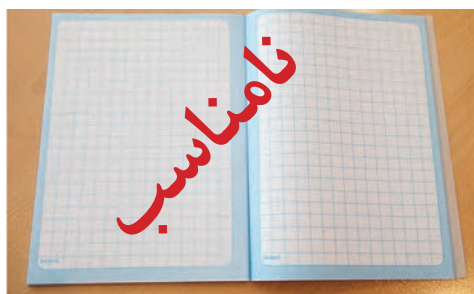 نامناسب